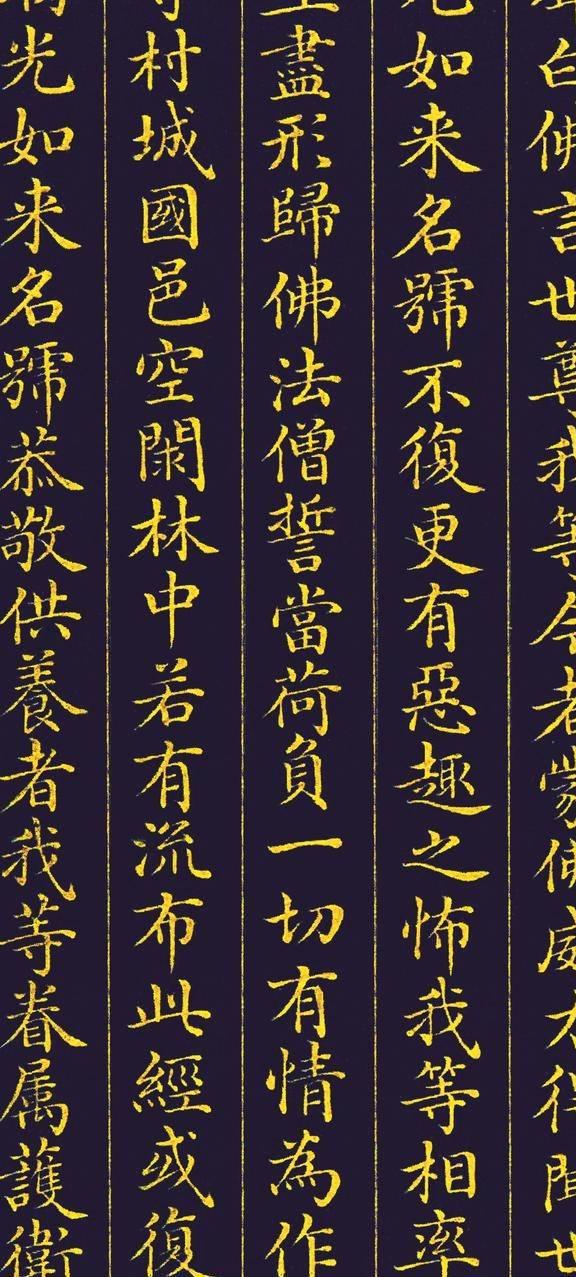 白佛言世尊我等今者蒙佛威力得聞世
光如来名號不復更有惡趣之怖我等相率
盡形歸佛法僧誓當荷負一切有情為作
村城國邑空閑林中若有流布此經或復
光如来名號恭敬供養者我等眷属護衛